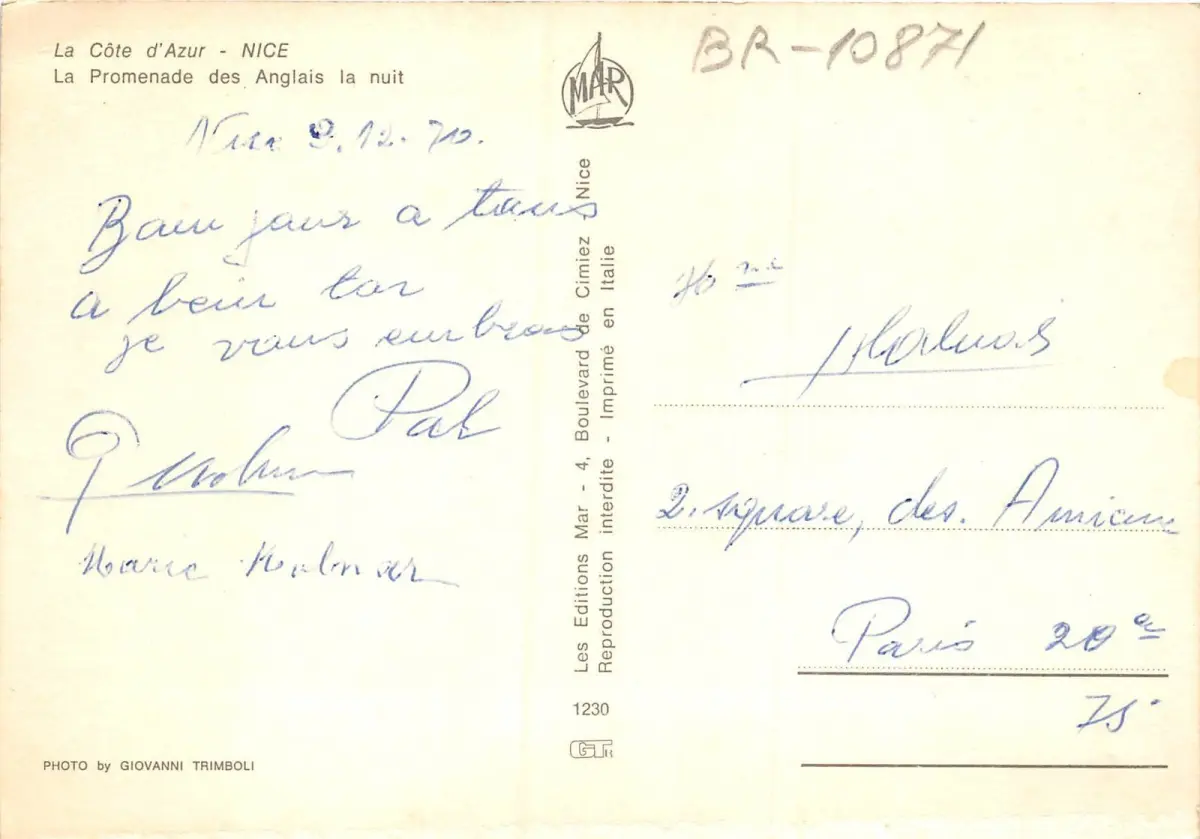 La Côte d'Azur - NICE
La Promenade des Anglais la nuit
Nice 9.12.70.
Bam jaur a taus
a bein tor
je vaus embras
Pal
Marie Molnar
PHOTO by GIOVANNI TRIMBOLI
MAR
Les Editions Mar - 4, Boulevard de Cimiez - Nice
Reproduction interdite - Imprimé en Italie
1230
BR-10871
2. square, des.
Paris 20e
75.